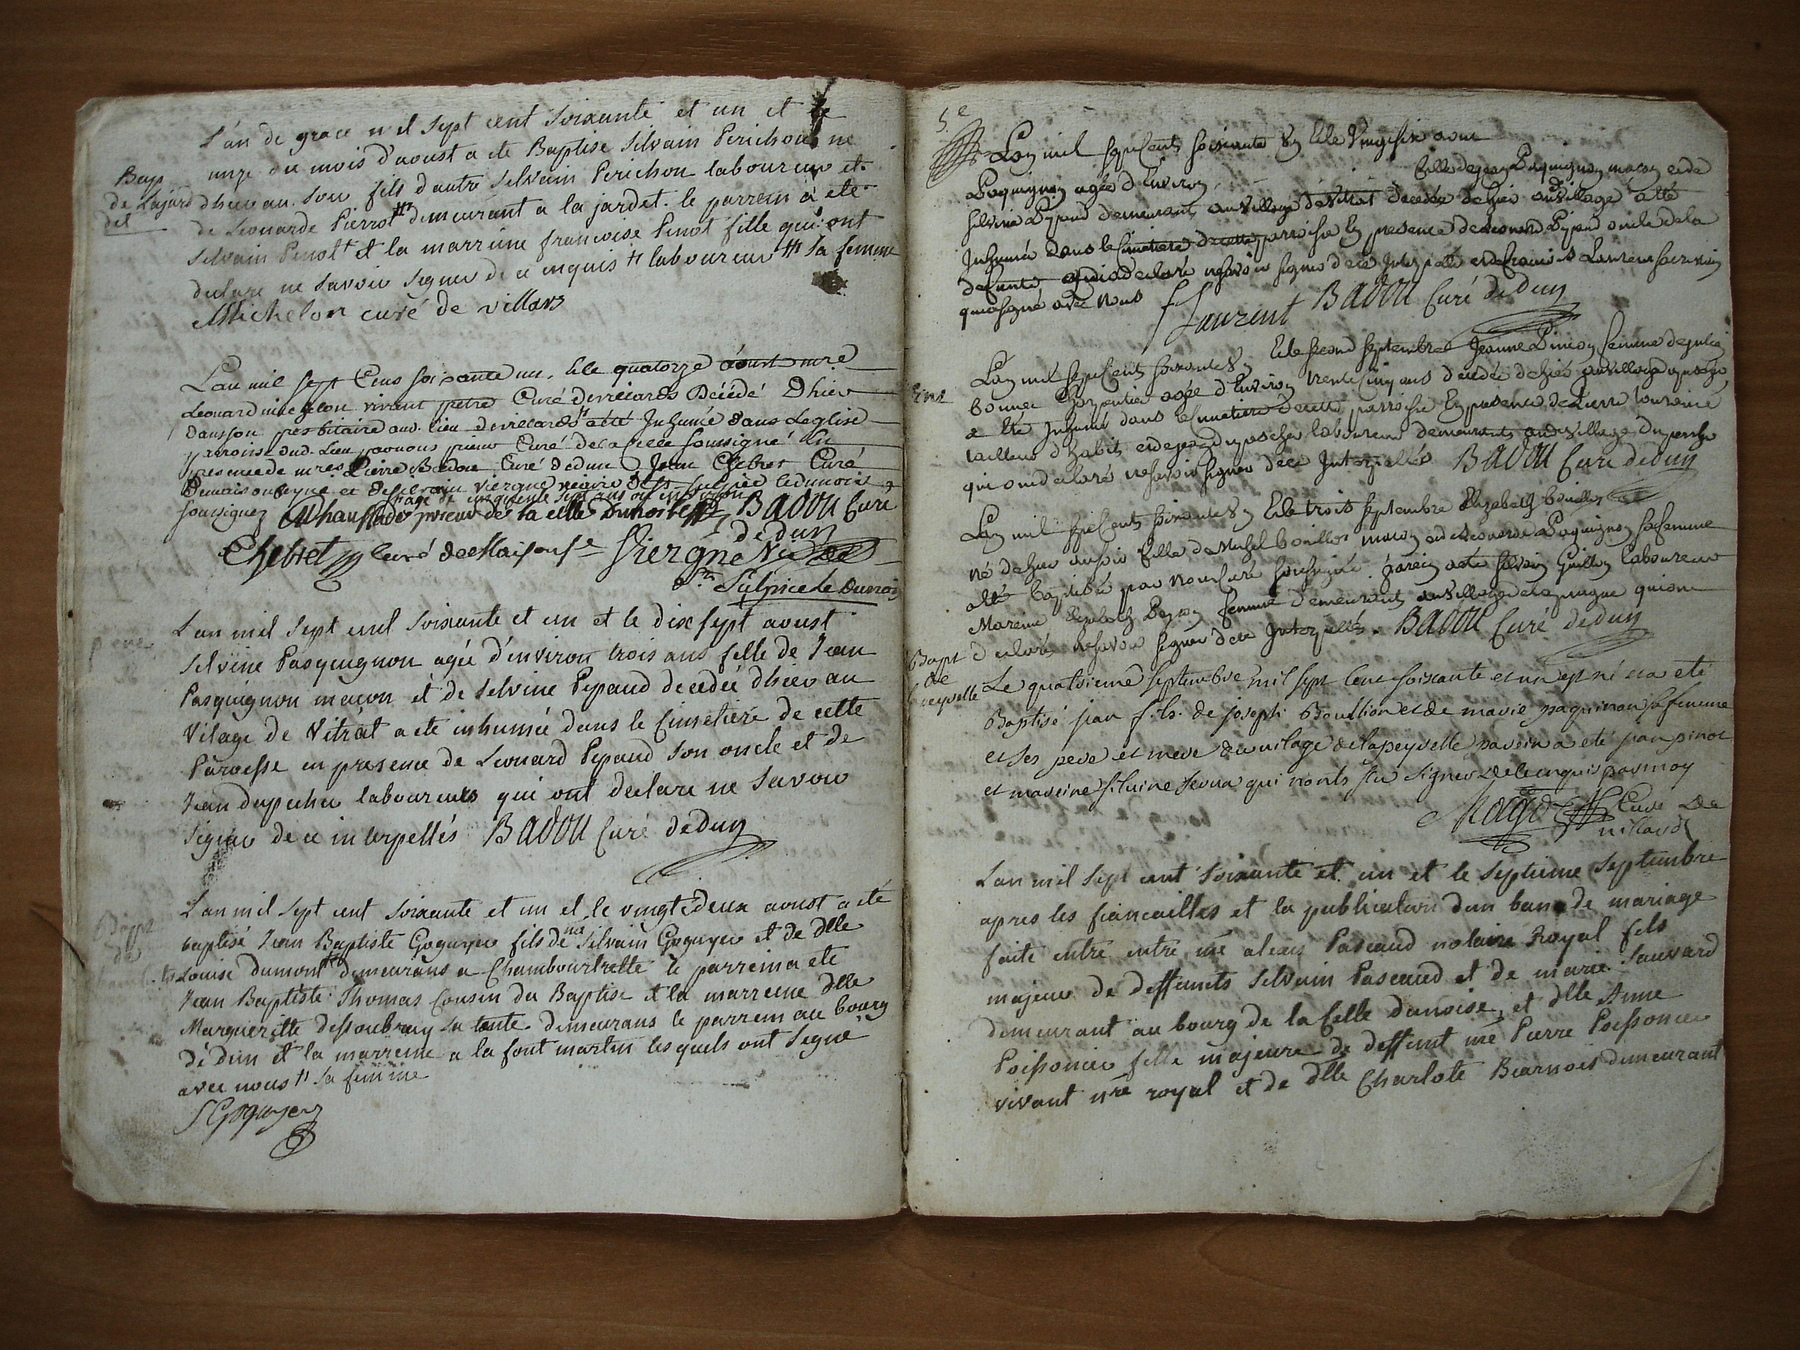 L'an de grace mil sept cent soixante et un et le
onze du mois d'aoust a ete Baptise Silvain Perichon ne
Bap
de lajard
det
dhier au soir fils d'autre Silvain Perichon laboureur et
de Leonarde Pierrot demeurant a la jardet. le parrein à été
Silvain Pinot et la marreine francoise Pinot fille qui ont
declare ne savoir signer de ce enquis laboureur sa femme
Michelon curé de villars
L'an mil sept Cens soixante un, et le quatorze aoust mre
Leonard michelon vivant pretre Curé de villards Décédé Dhier
dans son presbitaire au lieu de villards a été Inhumé dans Leglise
par nous prieur Curé de la Celle soussigné En
presence de mres Pierre Badou Curé dedun Jean Chebret Curé
de maisonfeyne et de silvain viergne vicaire de st sulpice le dunois
soussignez agé de cinquente sept ans ou environ
prieur de la celle Dunoise BADOU Curé
de dun
Chebret curé de Maisonfe Viergne Vic de
St Sulpice le Dunois
L'an mil sept cent soixante et un et le dix sept aoust
Silvine Pasquignon agée d'environ trois ans fille de Jean
Pasquignon maçon et de Silvine Pepaud decedée dhier au
vilage de Vitrat a ete inhumée dans le Cimetiere de cette
Paroisse en presence de Leonard Pepaud son oncle et de
Jean dupecher laboureurs qui ont declare ne savoir
signer de ce interpellés BADOU Curé de dun
L'an mil sept cent soixante et un et le vingt deux aoust a été
Bapt
baptisé Jean Baptiste Goguyer fils de Silvain Goguyer et de dlle
Louise dumont demeurans a Chambourtrette le parrein a ete
Jean Baptiste Thomas Cousin du Baptisé et la marreine dlle
Marguerítte dessoubray sa tante demeurans le parrein au bourg
de dun et la marreine a la font martin lesquels ont signé
avec nous sa femme
SGoguyer
5.e
L'an mil sept Cents soixante & un Et le Vingt six aout
Pasquignon agée d'Environ fille de jean Pasquignon maçon et de
silvine Pepaud demeurants au village de vitrat decedée de hier au village a été
Inhumée dans le cimetiere de cette parroisse En presence de Leonard Pepaud oncle de la
defunte qui a declaré ne savoir signer de ce Interpellé et de francois Laurent sacristain
qui a signé avec nous f Laurent BADOU Curé de dun
L'an mil sept Cents soixante & un Et le second septembre Jeanne Pinion femme de julien
bonnet Charpentier agée d'Environ trente Cinq ans decedée de hier au village
a été Inhumée dans le cimetiere de cette parroisse En presence de Pierre
tailleur d'habits et de jean dupecher laboureur demeurants au village
qui ont declaré ne savoir signer de ce Interpellés BADOU Curé de dun
L'an mil sept Cents soixante & un Et le trois septembre Elizabeth bouillon
né de hier au soir fille de Michel bouillon maçon et de Leonarde Paquignon sa femme
a été baptisée par nous Curé soussigné. parrein a été silvain Guillon Laboureur
Mareine Elizabeth femme demeurants au village de qui ont
declarés ne savoir signer de ce Interpellés. BADOU Curé de dun
Bapt
de
Le quatrieme septembre mil sept Cent soixante et un est né et a eté
Baptisé jean fils de joseph Bouillion et de marie paquinon sa femme
et ses pere et mere du vilage de lapeyvelle parein a eté jean pinot
et mareine silvine qui nonts su signer de ce enquis par moy
Curé de
villards
L'an mil sept cent soixante et un et le septieme septembre
apres les fiancailles et la publication d'un ban de mariage
faite entre entre me alexis Pascaud notaire Royal fils
majeur de deffunts Silvain Pascaud et de marie Sauvard
demeurant au bourg de la Celle dunoise, et dlle Anne
Poissonier fille majeure de deffunt me Pierre Poissonier
vivant nre royal et de dlle Charlote Biarnois demeurant